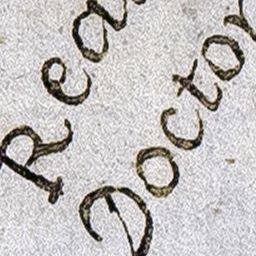 Rea
Doctor